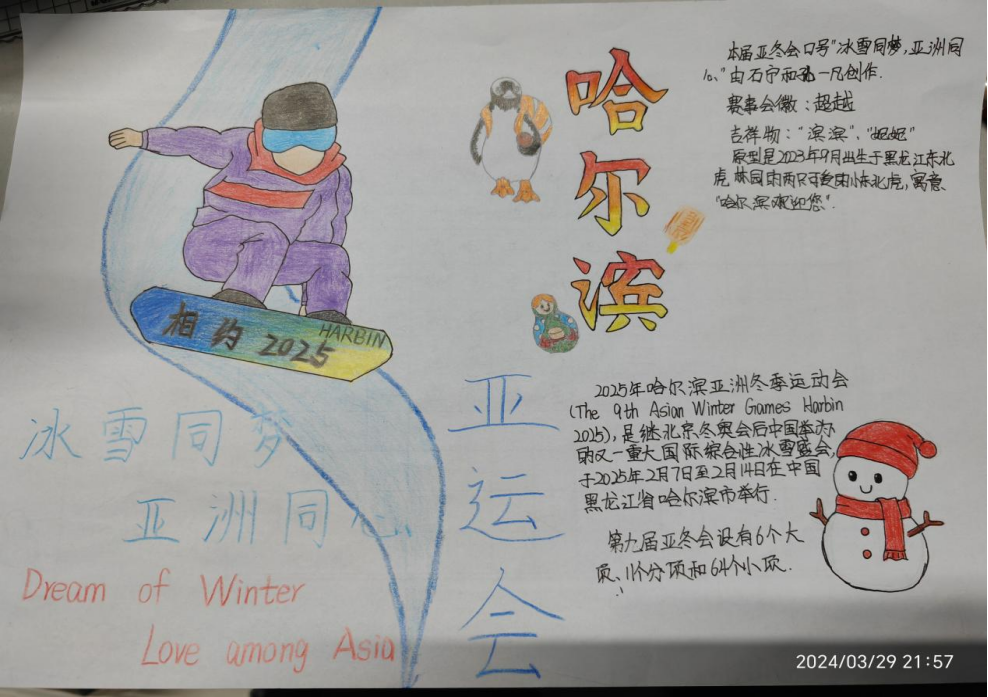 哈
尔
滨
本届亚冬会口号"冰雪同梦,亚洲同
心"由石宁和孔一凡创作.
赛事会徽:超越
吉祥物:"滨滨"、"妮妮"
原型是2023年9月出生于黑龙江东北
虎林园的两只可爱的小东北虎,寓意
"哈尔滨欢迎您".
相约2025
HARBIN
冰雪同梦
亚洲同心
Dream of Winter
Love among Asia
亚
运
会
2025年哈尔滨亚洲冬季运动会
(The 9th Asian Winter Games Harbin
2025),是继北京冬奥会后中国举办
的又一重大国际综合性冰雪盛会,
于2025年2月7日至2月14日在中国
黑龙江省哈尔滨市举行.
第九届亚冬会设有6个大
项、11个分项和64个小项.
2024/03/29 21:57